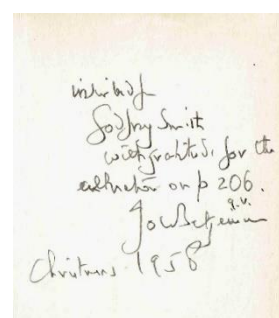 inscribed for
Godfrey Smith
with gratitude for the
on p 206.
John Betjeman
q.v.
Christmas 1958